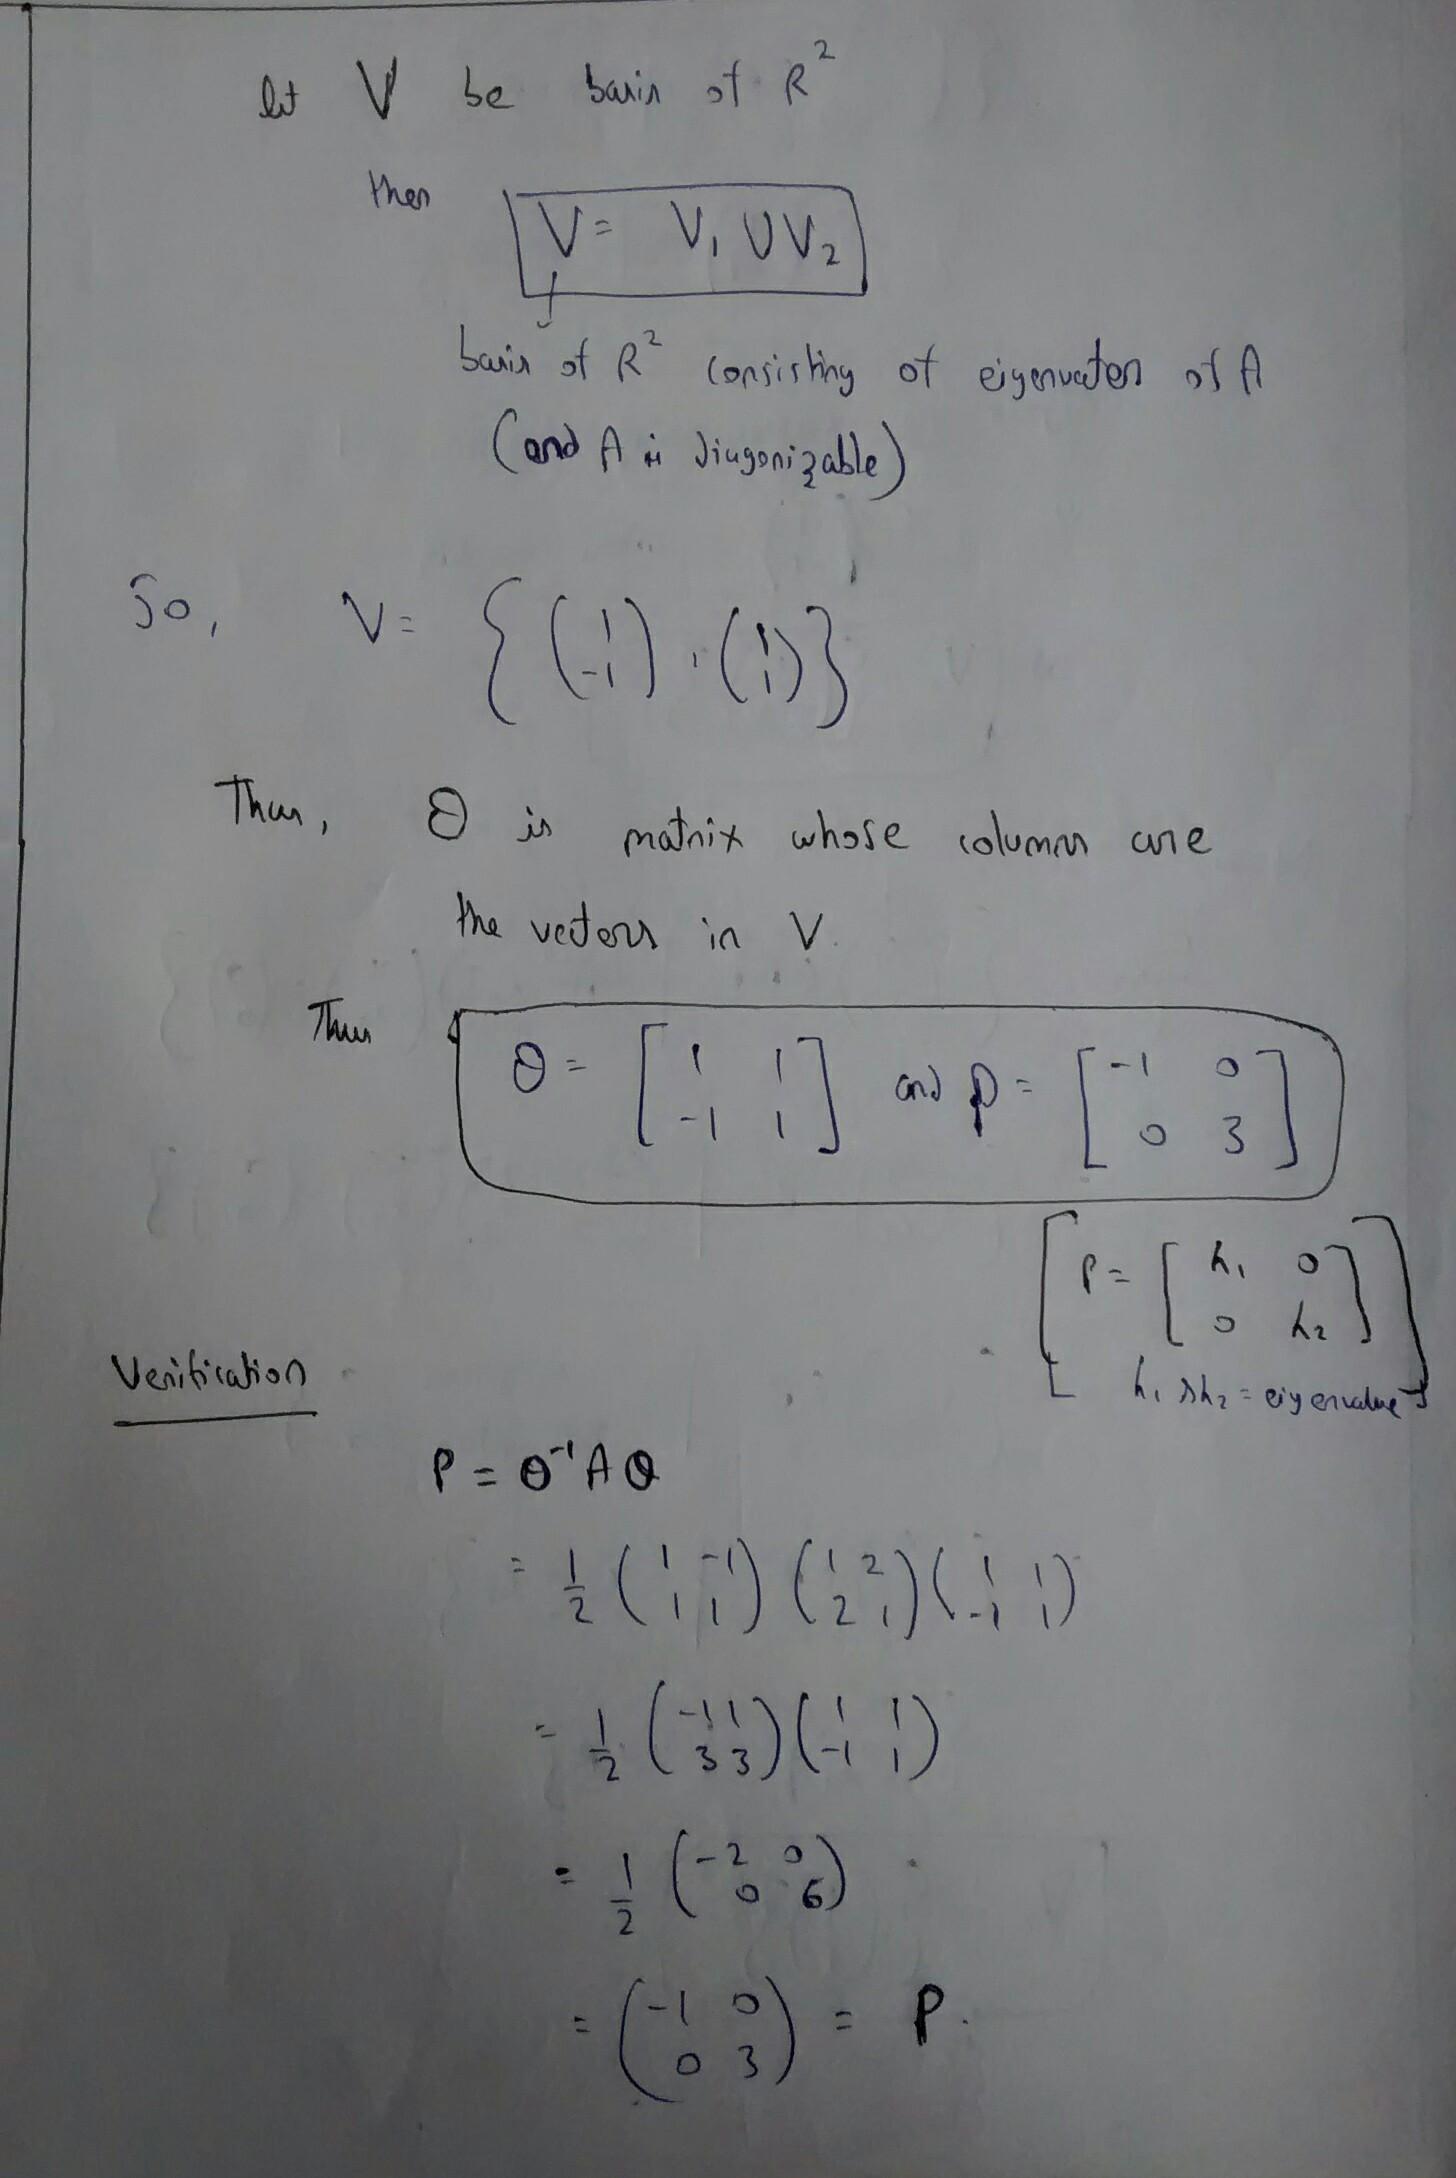 let V be basis of R²
then V = V₁ U V₂
basis of R² consisting of eigenvectors of A
(and A is diagonizable)
So, V = { (1 -1), (1 1) }
Thus, Q is matrix whose columns are
the vectors in V.
Thus Q = [1 1 -1 1] and P = [-1 0 0 3]
[P = [λ₁ 0 0 λ₂]
λ₁ & λ₂ = eigenvalue]
Verification
P = Q⁻¹ A Q
= 1/2 (1 -1 1 1) (1 2 2 1) (1 1 -1 1)
= 1/2 (-1 1 3 3) (1 1 -1 1)
= 1/2 (-2 0 0 6)
= (-1 0 0 3) = P.